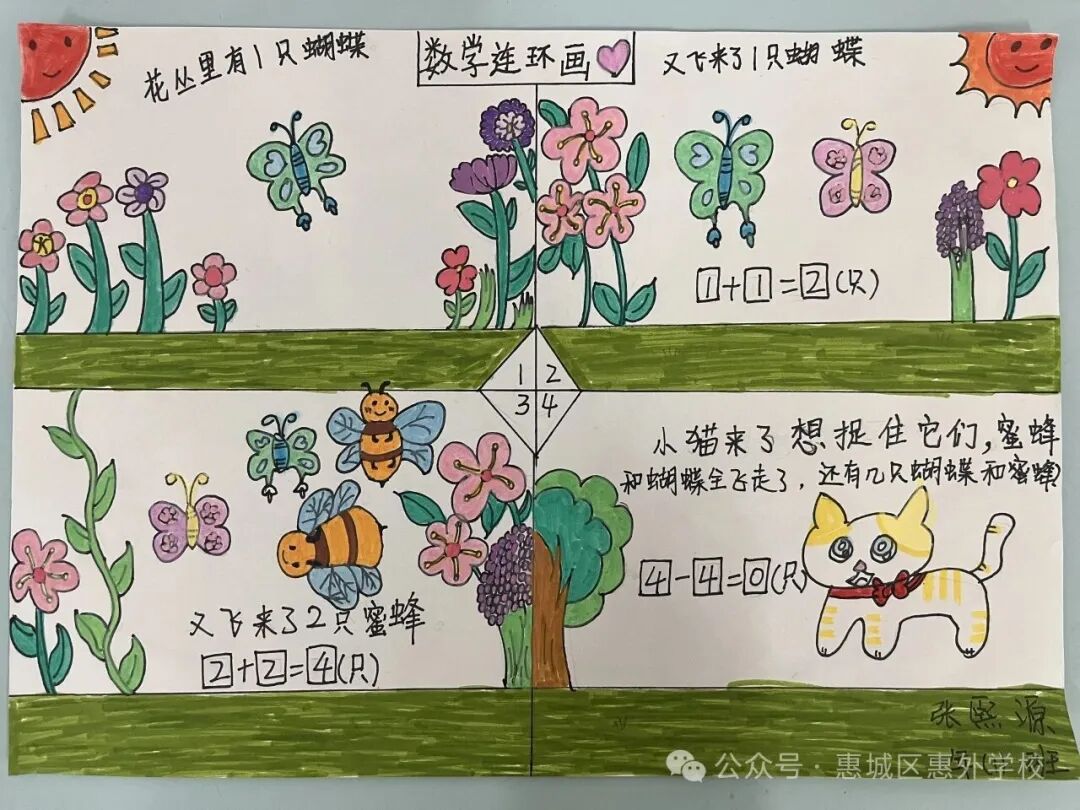 数学连环画
花丛里有1只蝴蝶
又飞来了1只蝴蝶
1+1=2(只)
1 2
3 4
又飞来了2只蜜蜂
2+2=4(只)
小猫来了想捉住它们,蜜蜂
和蝴蝶全飞走了,还有几只蝴蝶和蜜蜂?
4-4=0(只)
张熙源
班
公众号·惠城区惠外学校